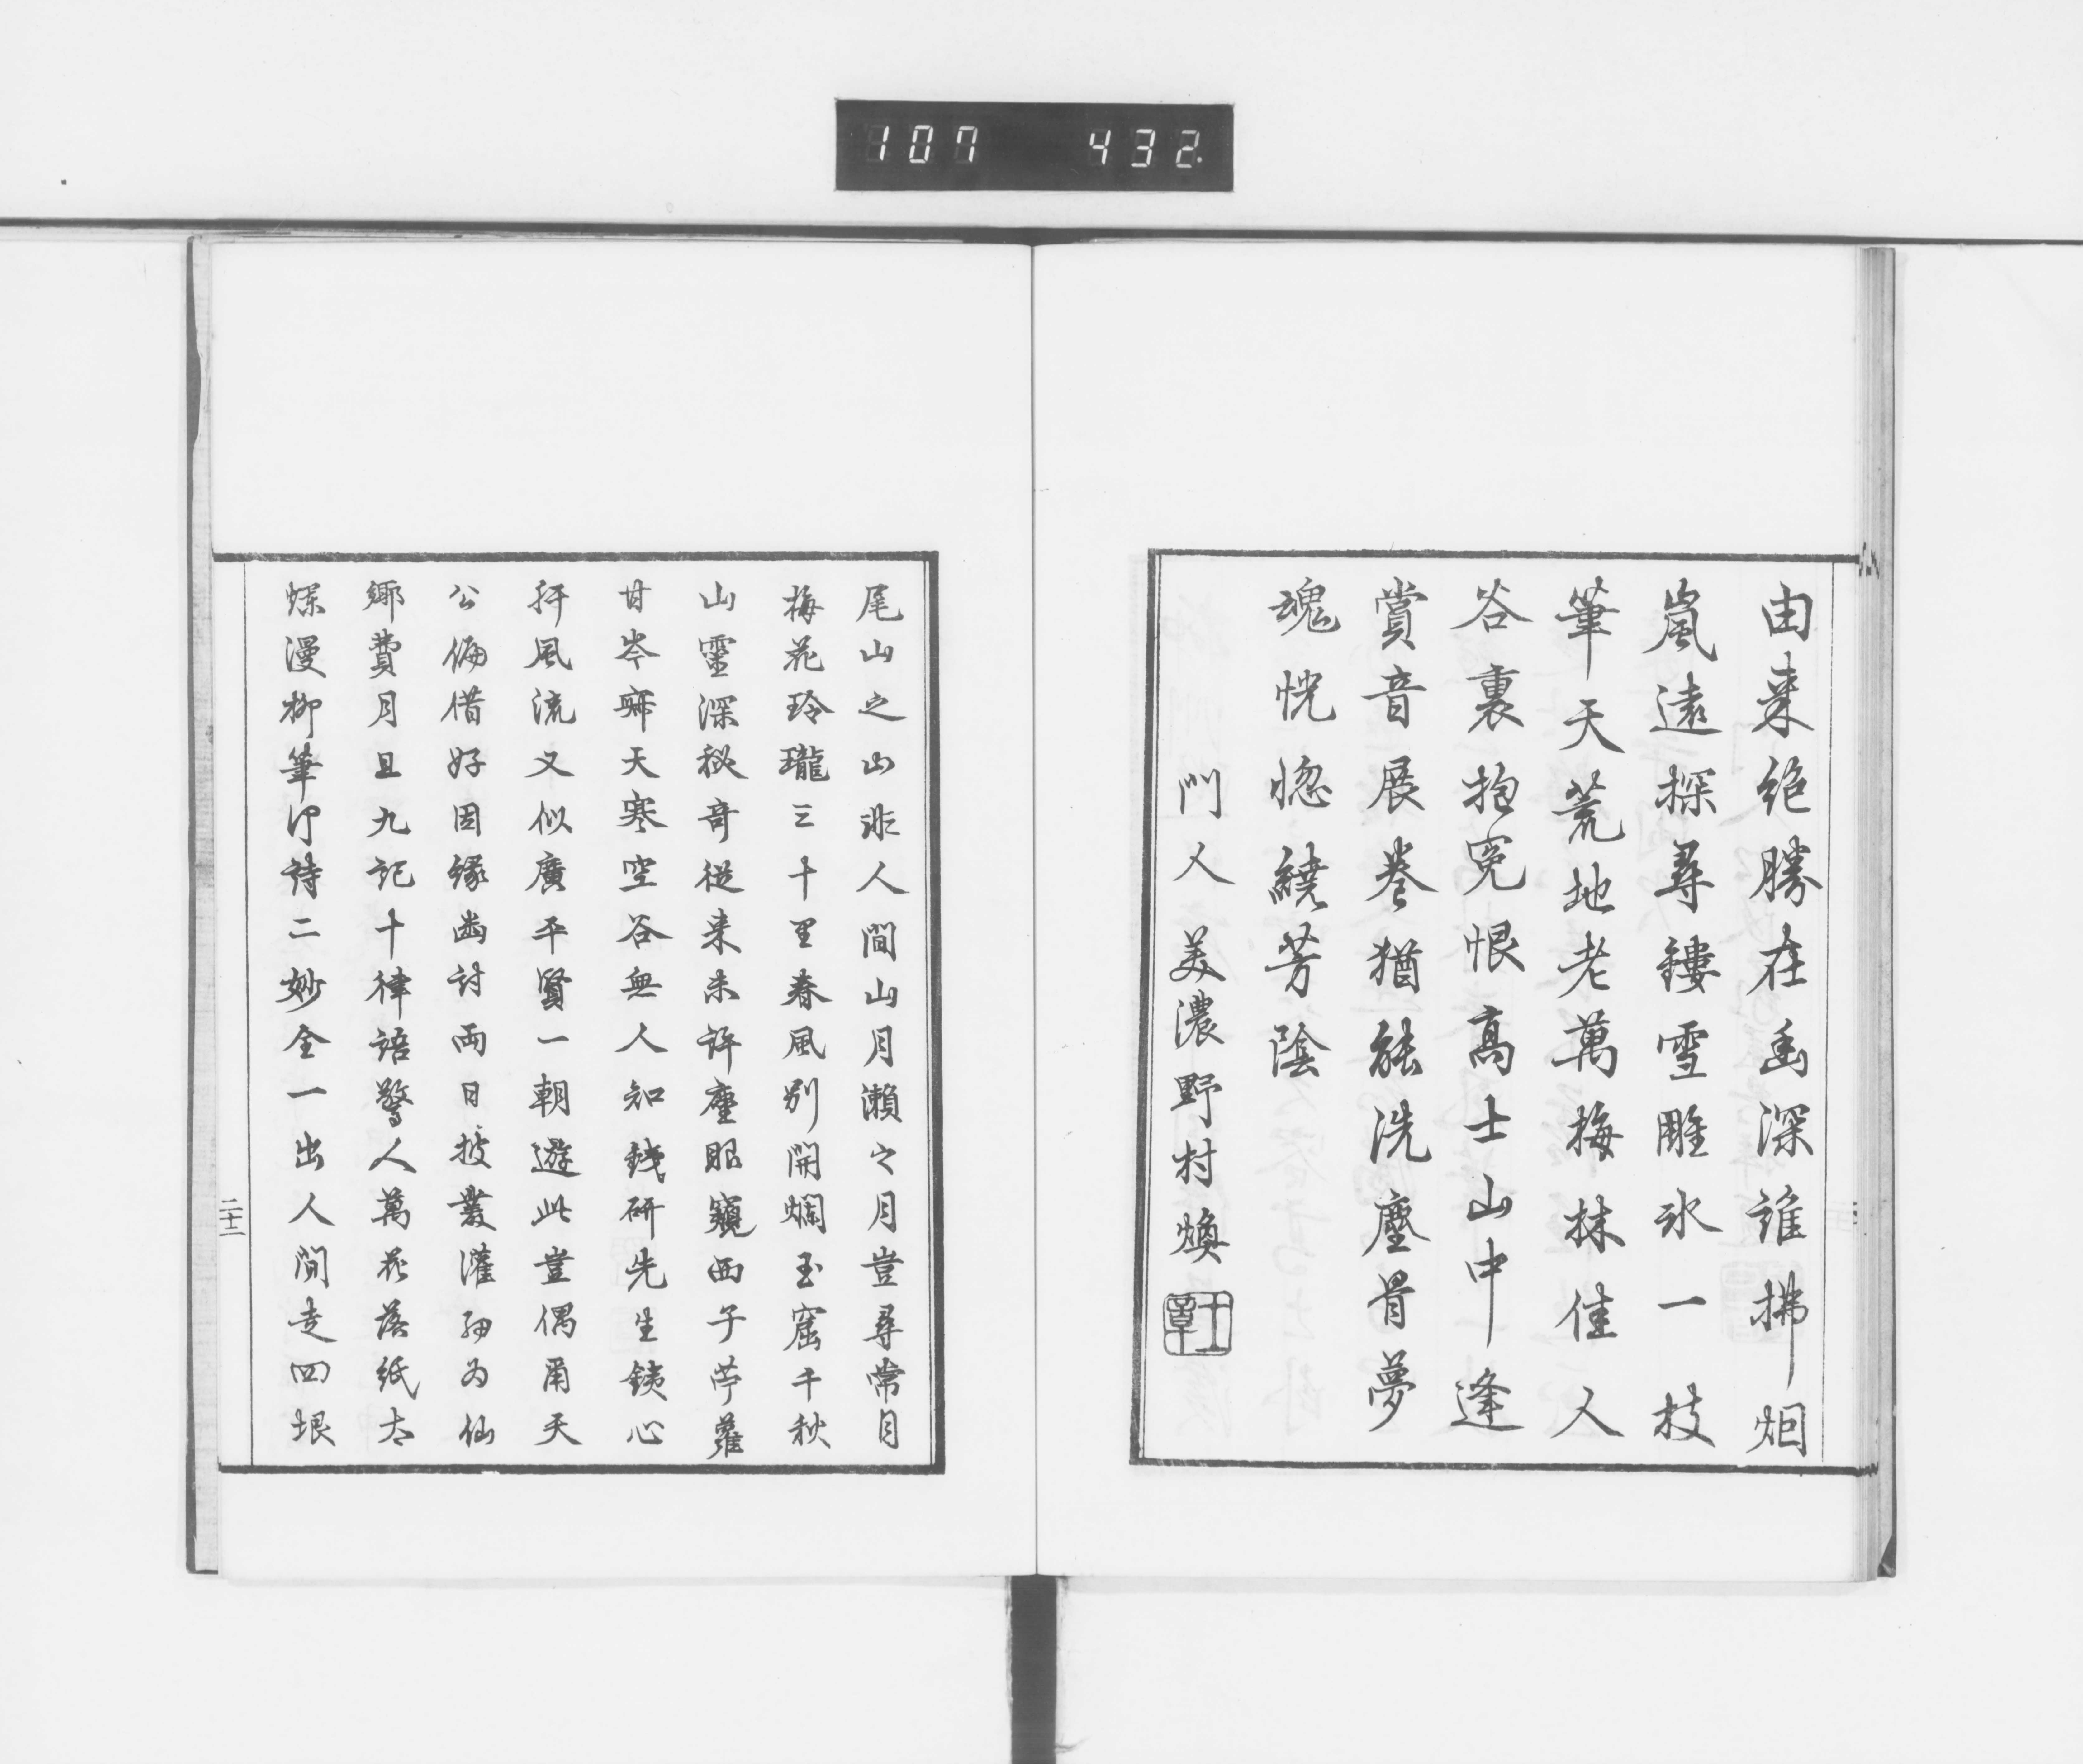 107 432
由来絶勝在幽深誰拂烟
嵐遠探尋鏤雪雕氷一枝
筆天荒地老萬梅林佳人
谷裏抱冤恨高士山中逢
賞音展巻猶能洗塵骨夢
魂恍惚繞芳陰
門人美濃野村煥
尾山之山非人間山月瀬之月豈尋常月
梅花玲瓏三十里春風別開爛玉窟千秋
山靈深秘奇從来未許塵眼窺西子苧蘿
甘岑寂天寒空谷無人知鐵研先生鐵心
肝風流又似廣平賢一朝遊此豈偶甬天
公偏借好因縁幽討両日披叢灌為仙
郷費月旦九記十律語驚人萬花落紙太
爛漫柳筆行詩二妙全一出人間走四垠
二十二